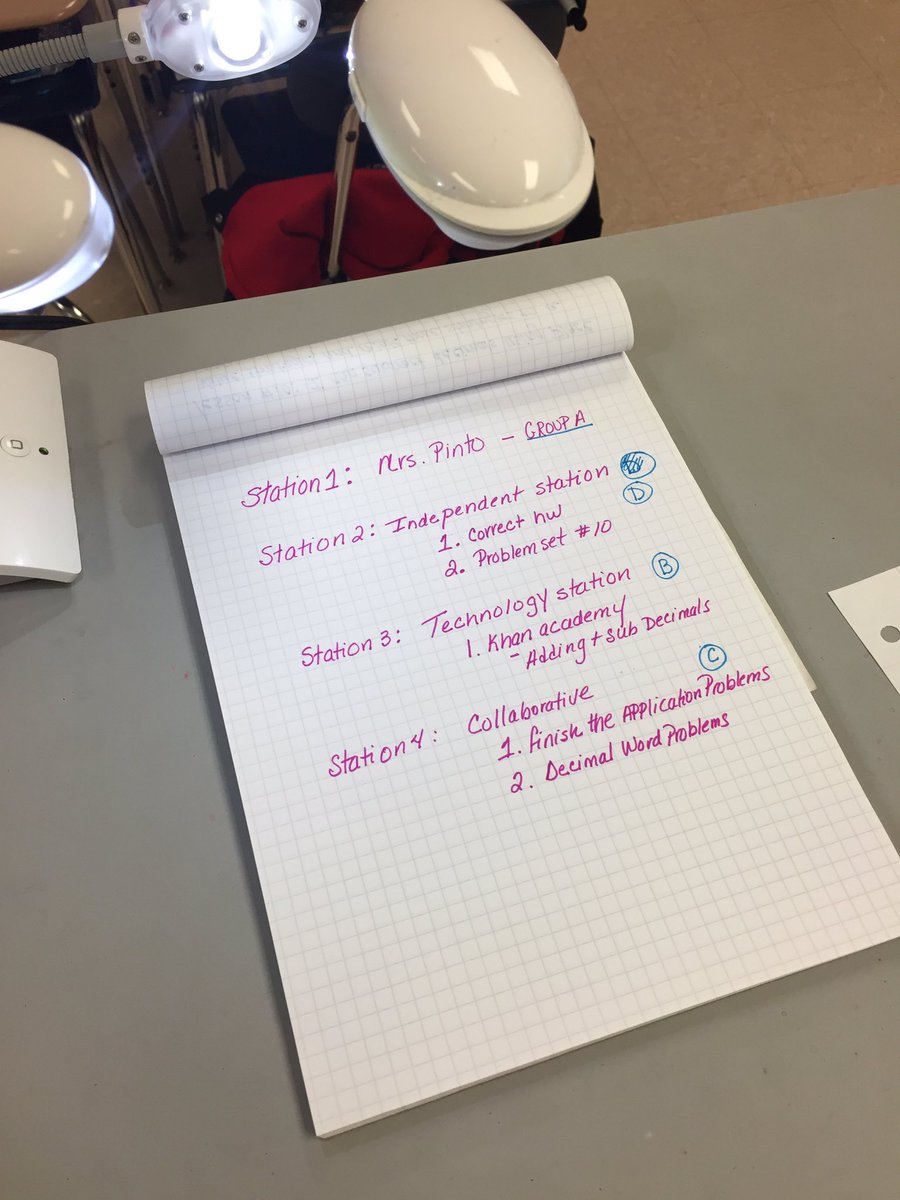 Station 1: Mrs. Pinto - GROUP A
Station 2: Independent station
D
1. Correct hw
2. Problem set #10
Station 3: Technology station B
1. Khan academy
- Adding + Sub Decimals
Station 4: Collaborative C
1. Finish the Application Problems
2. Decimal Word Problems